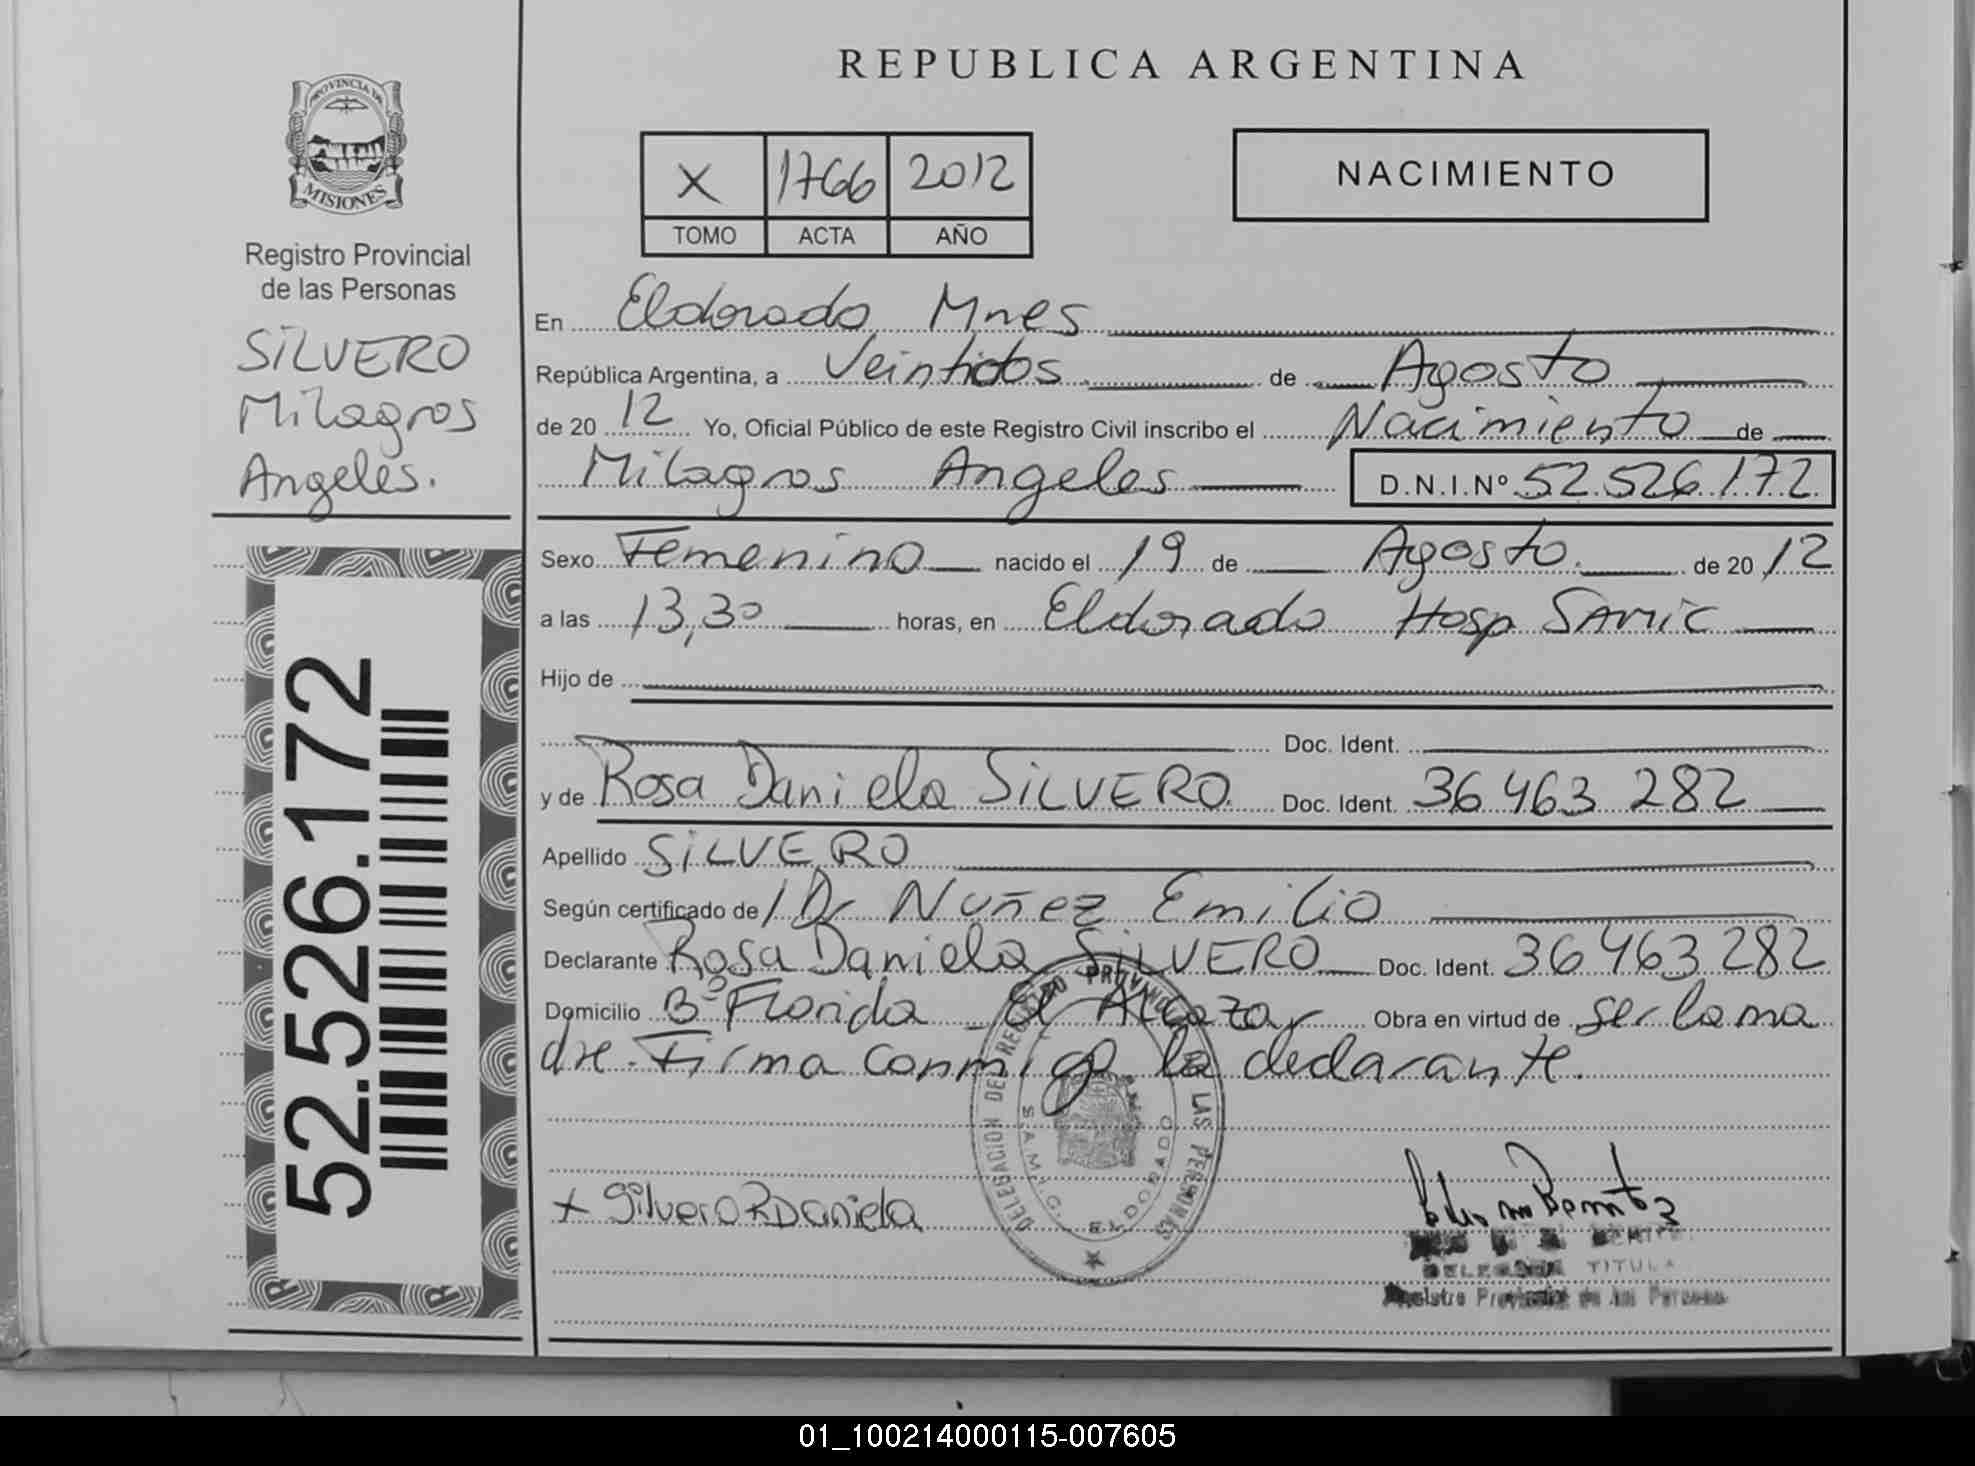 PROVINCIA DE
MISIONES
Registro Provincial
de las Personas
SILVERO
Milagros
Angeles.
52.526.172
REPUBLICA ARGENTINA
X 1766 2012
TOMO ACTA AÑO
NACIMIENTO
En Eldorado Mnes
República Argentina, a Veintidos de Agosto
de 20 12 Yo, Oficial Público de este Registro Civil inscribo el Nacimiento de
Milagros Angeles D.N.I.Nº 52.526.172
Sexo Femenino nacido el 19 de Agosto de 20 12
a las 13,30 horas, en Eldorado Hosp SAMIC
Hijo de
Doc. Ident.
y de Rosa Daniela SILVERO Doc. Ident. 36 463 282
Apellido SILVERO
Según certificado de Dr Nuñez Emilio
Declarante Rosa Daniela SILVERO Doc. Ident. 36 463 282
Domicilio Bº Florida El Alcazar Obra en virtud de ser la ma
dre. Firma conmigo la declarante.
DELEGACION DEL REGISTRO PROVINCIAL DE LAS PERSONAS
S.A.M.I.C. ELDORADO
x Silvero R Daniela
TITULAR
Registro Provincial de las Personas
01_100214000115-007605